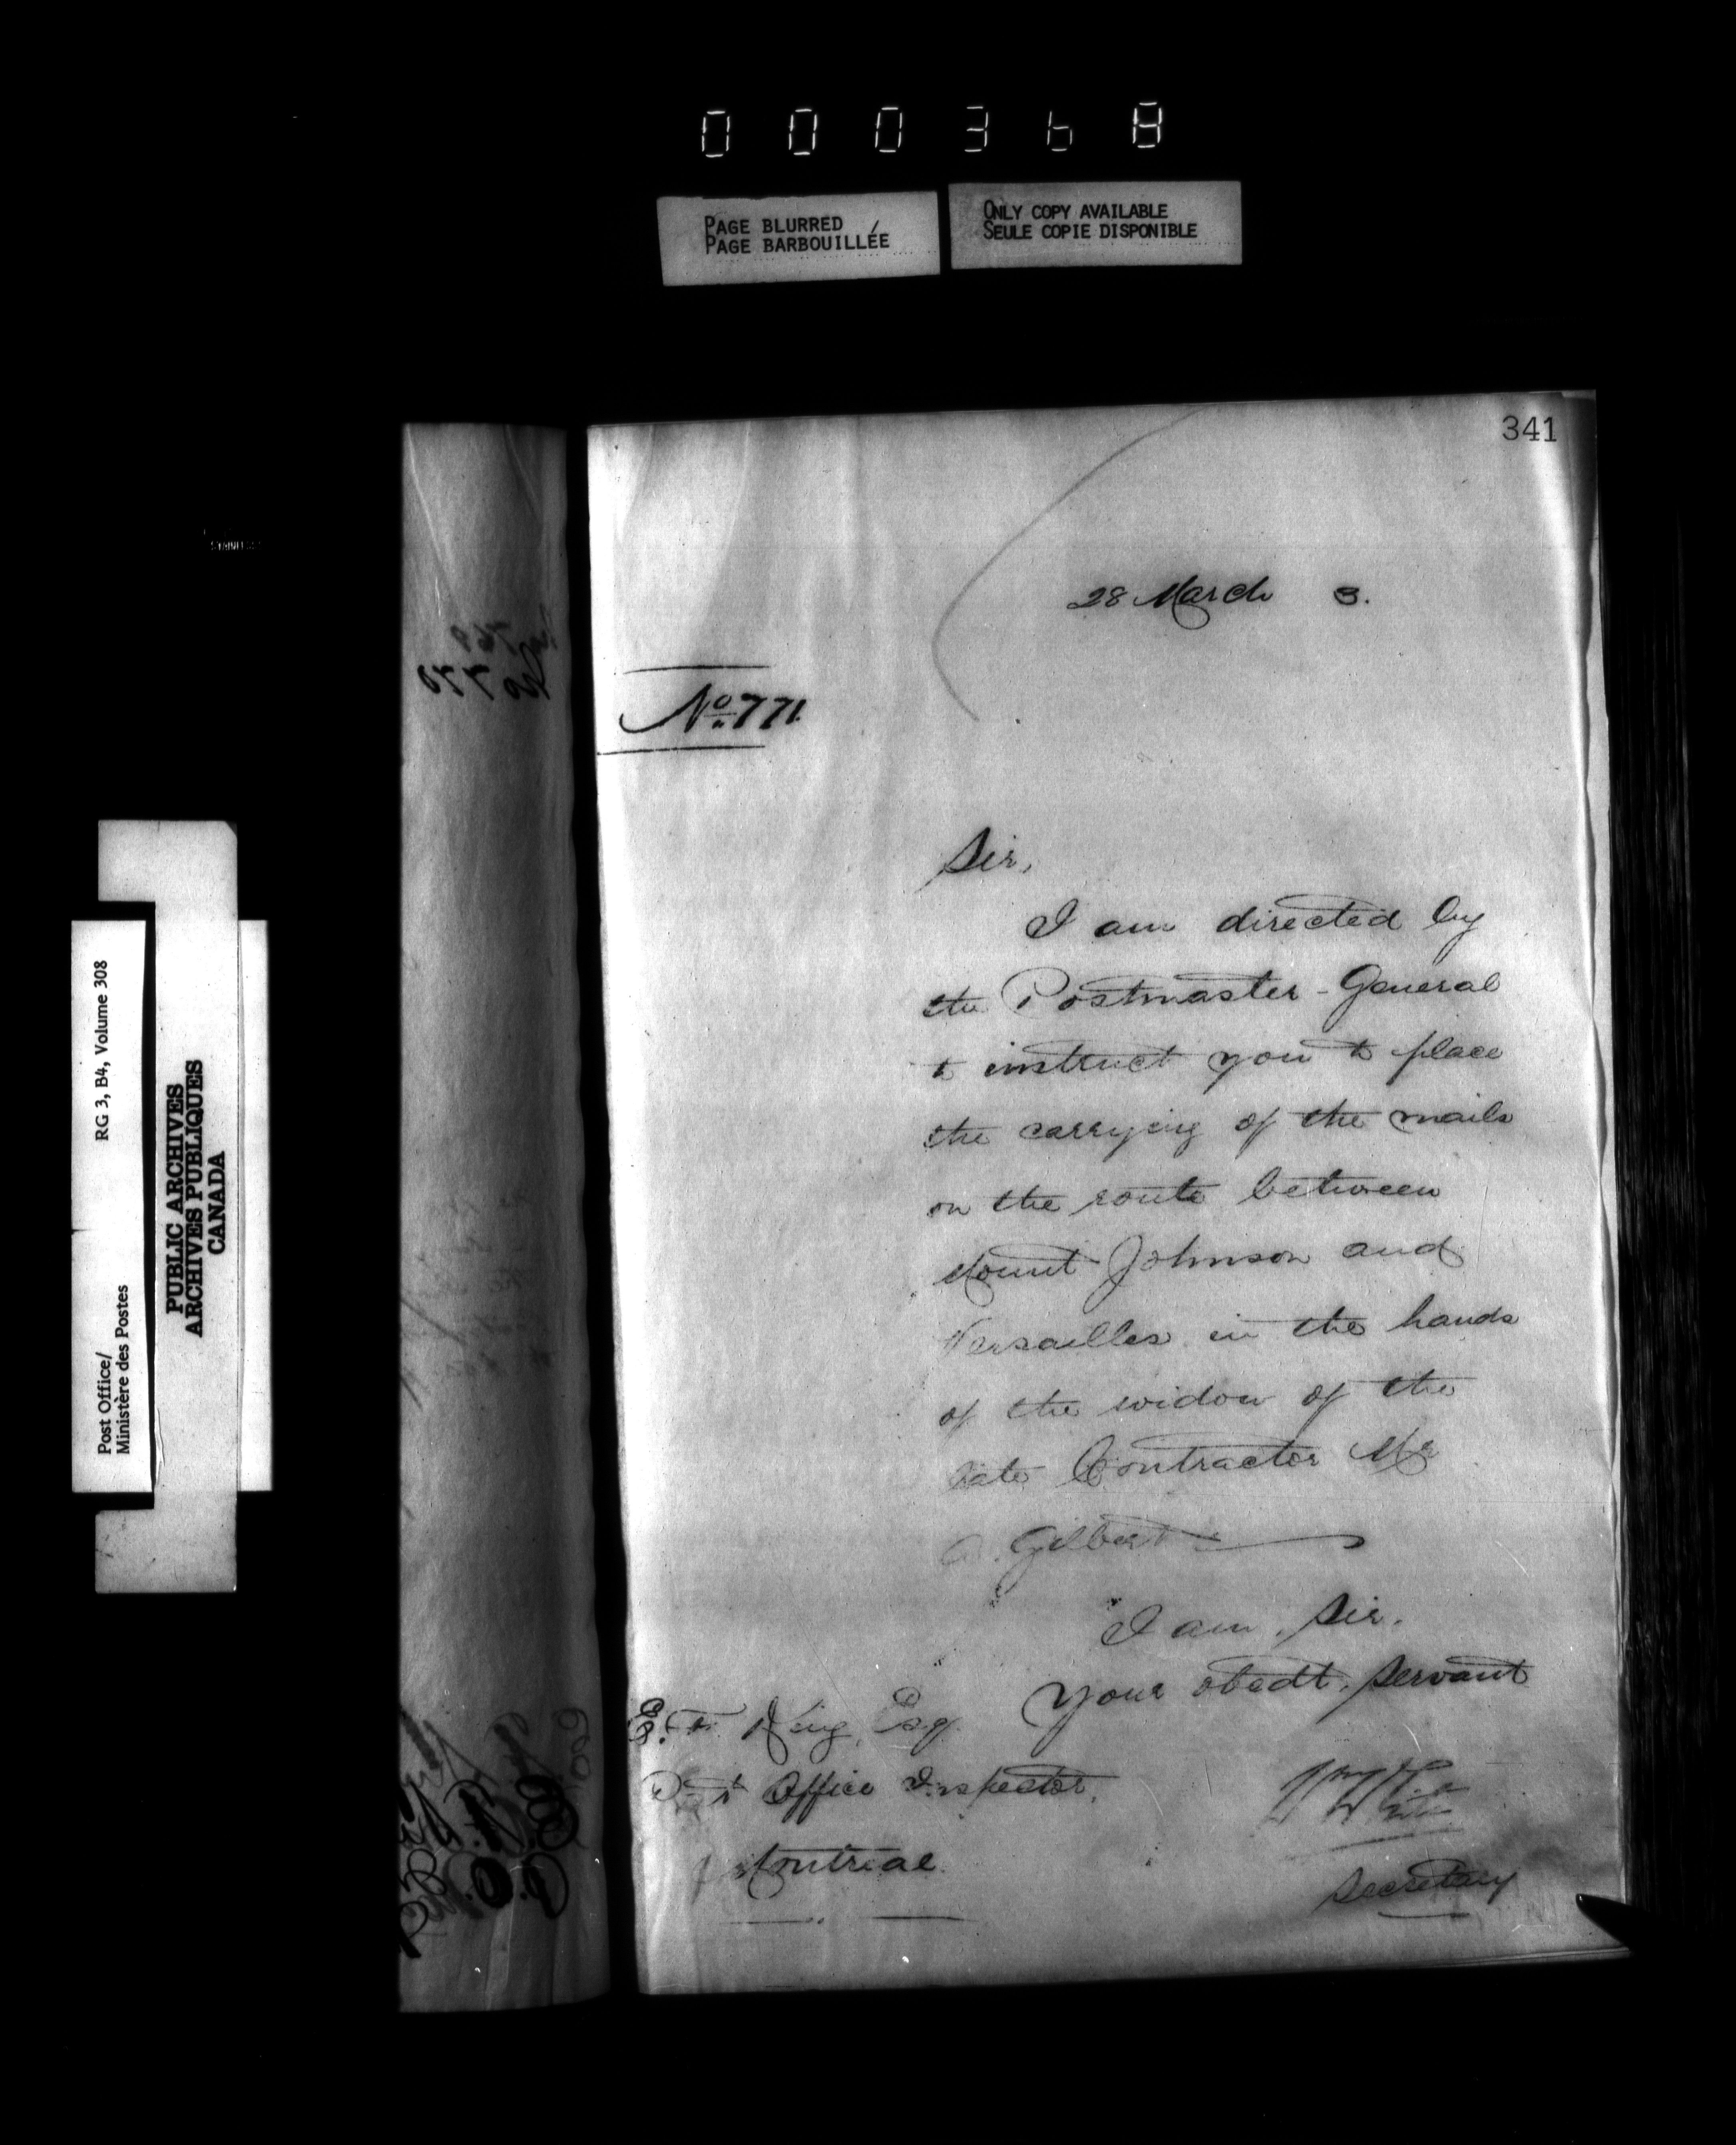 000368
PAGE BLURRED
PAGE BARBOUILLÉE
ONLY COPY AVAILABLE
SEULE COPIE DISPONIBLE
341
28 March 3.
No. 771.
Sir,
I am directed by
the Postmaster-General
to instruct you to place
the carrying of the mails
on the route between
Mount Johnson and
Versailles in the hands
of the widow of the
late Contractor Mr
Gilbert
I am, Sir.
Your obedt. servant
E. F. King, Esq.
Post Office Inspector,
Montreal
Wm White
Secretary
Post Office/
Ministère des Postes
RG 3, B4, Volume 308
PUBLIC ARCHIVES
ARCHIVES PUBLIQUES
CANADA